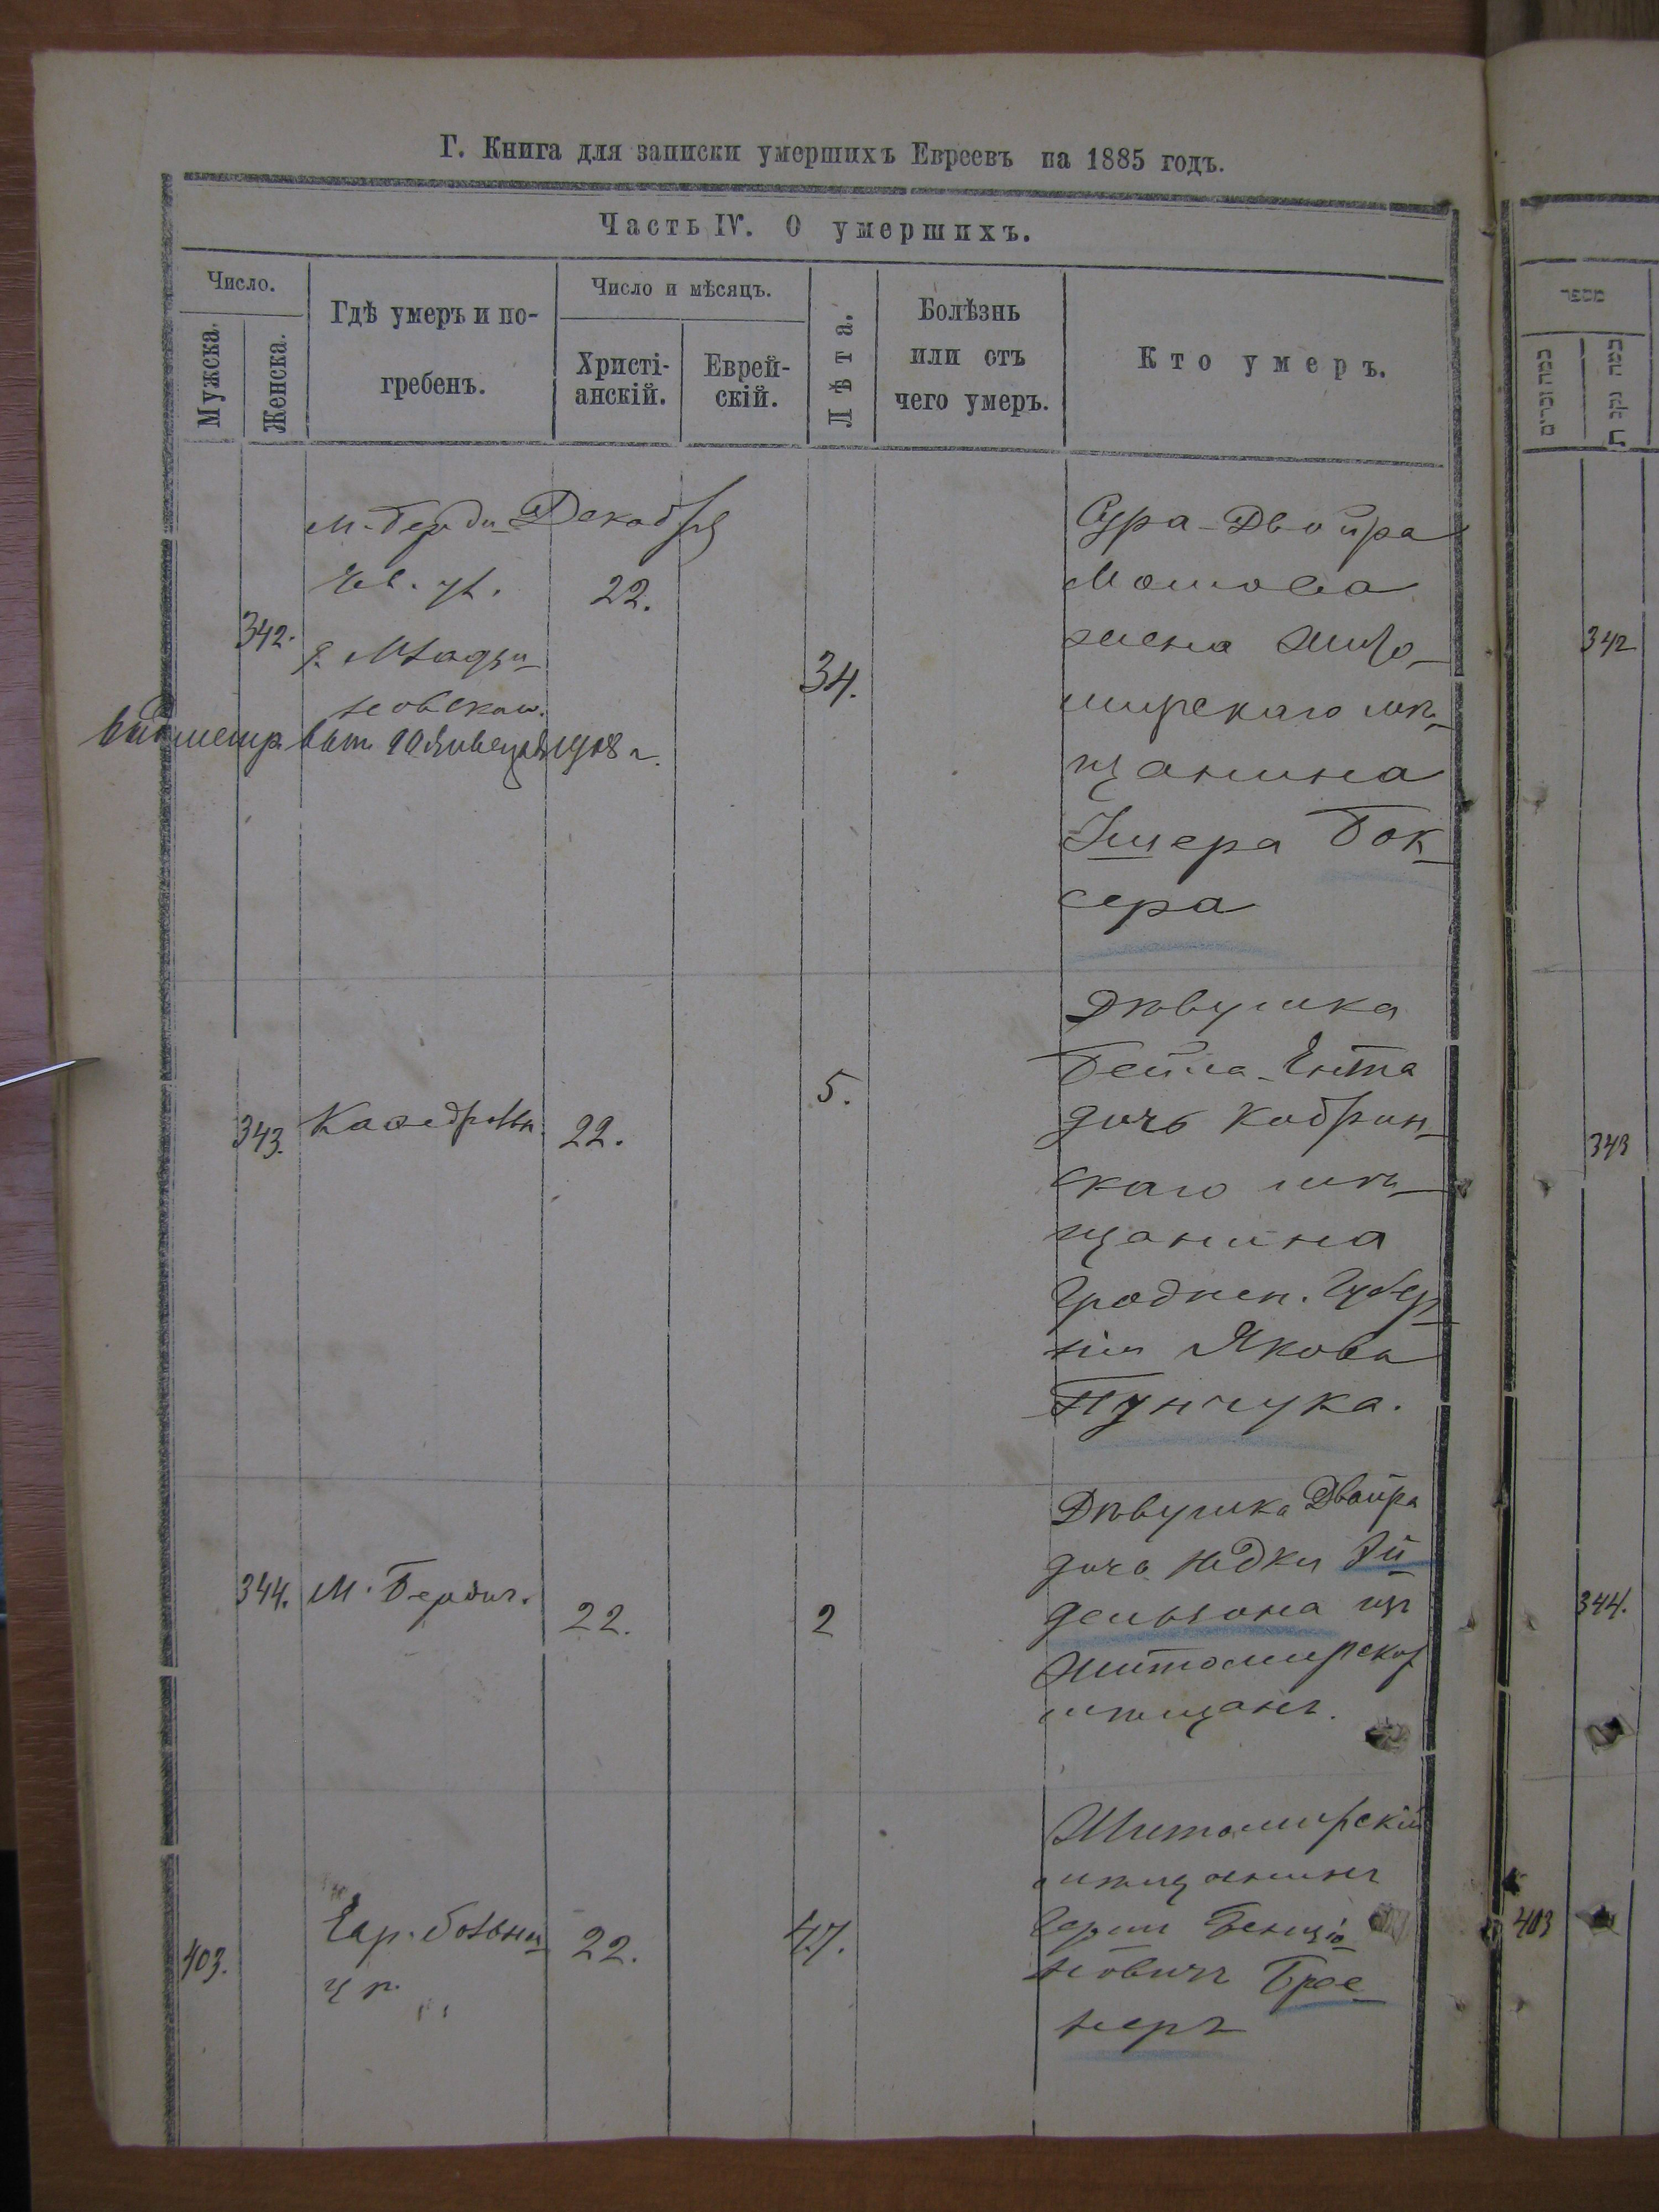 Г. Книга для записки умершихъ Евреевъ на 1885 годъ.
Часть IV. О умершихъ.
Число.
Мужска.
Женска.
Гдѣ умеръ и по-
гребенъ.
Число и мѣсяцъ.
Христі-
анскій.
Еврей-
скій.
Лѣта.
Болѣзнь
или отъ
чего умеръ.
Кто умеръ.
מספר
342.
м. Берди-
Декабря
22.
34.
Сура-Двойра
Мошова
жена Жито-
мирскаго мѣ-
щанина
Ушера Бок-
сера
342
343.
Кафедральн.
22.
5.
Дѣвушка
Бейла-Ента
дочь Кобрин-
скаго мѣ-
щанина
Гроднен. Губер-
ніи Якова
Пунчука.
343
344.
М. Бердич.
22.
2
Дѣвушка Двойра
дочь Юдки Эй
дельзона изъ
Житомирских
мѣщанъ.
344.
403.
Евр. больни
цѣ
22.
47.
Житомирскій
мѣщанинъ
Берко Бенціо
новичъ Брое-
неръ
403